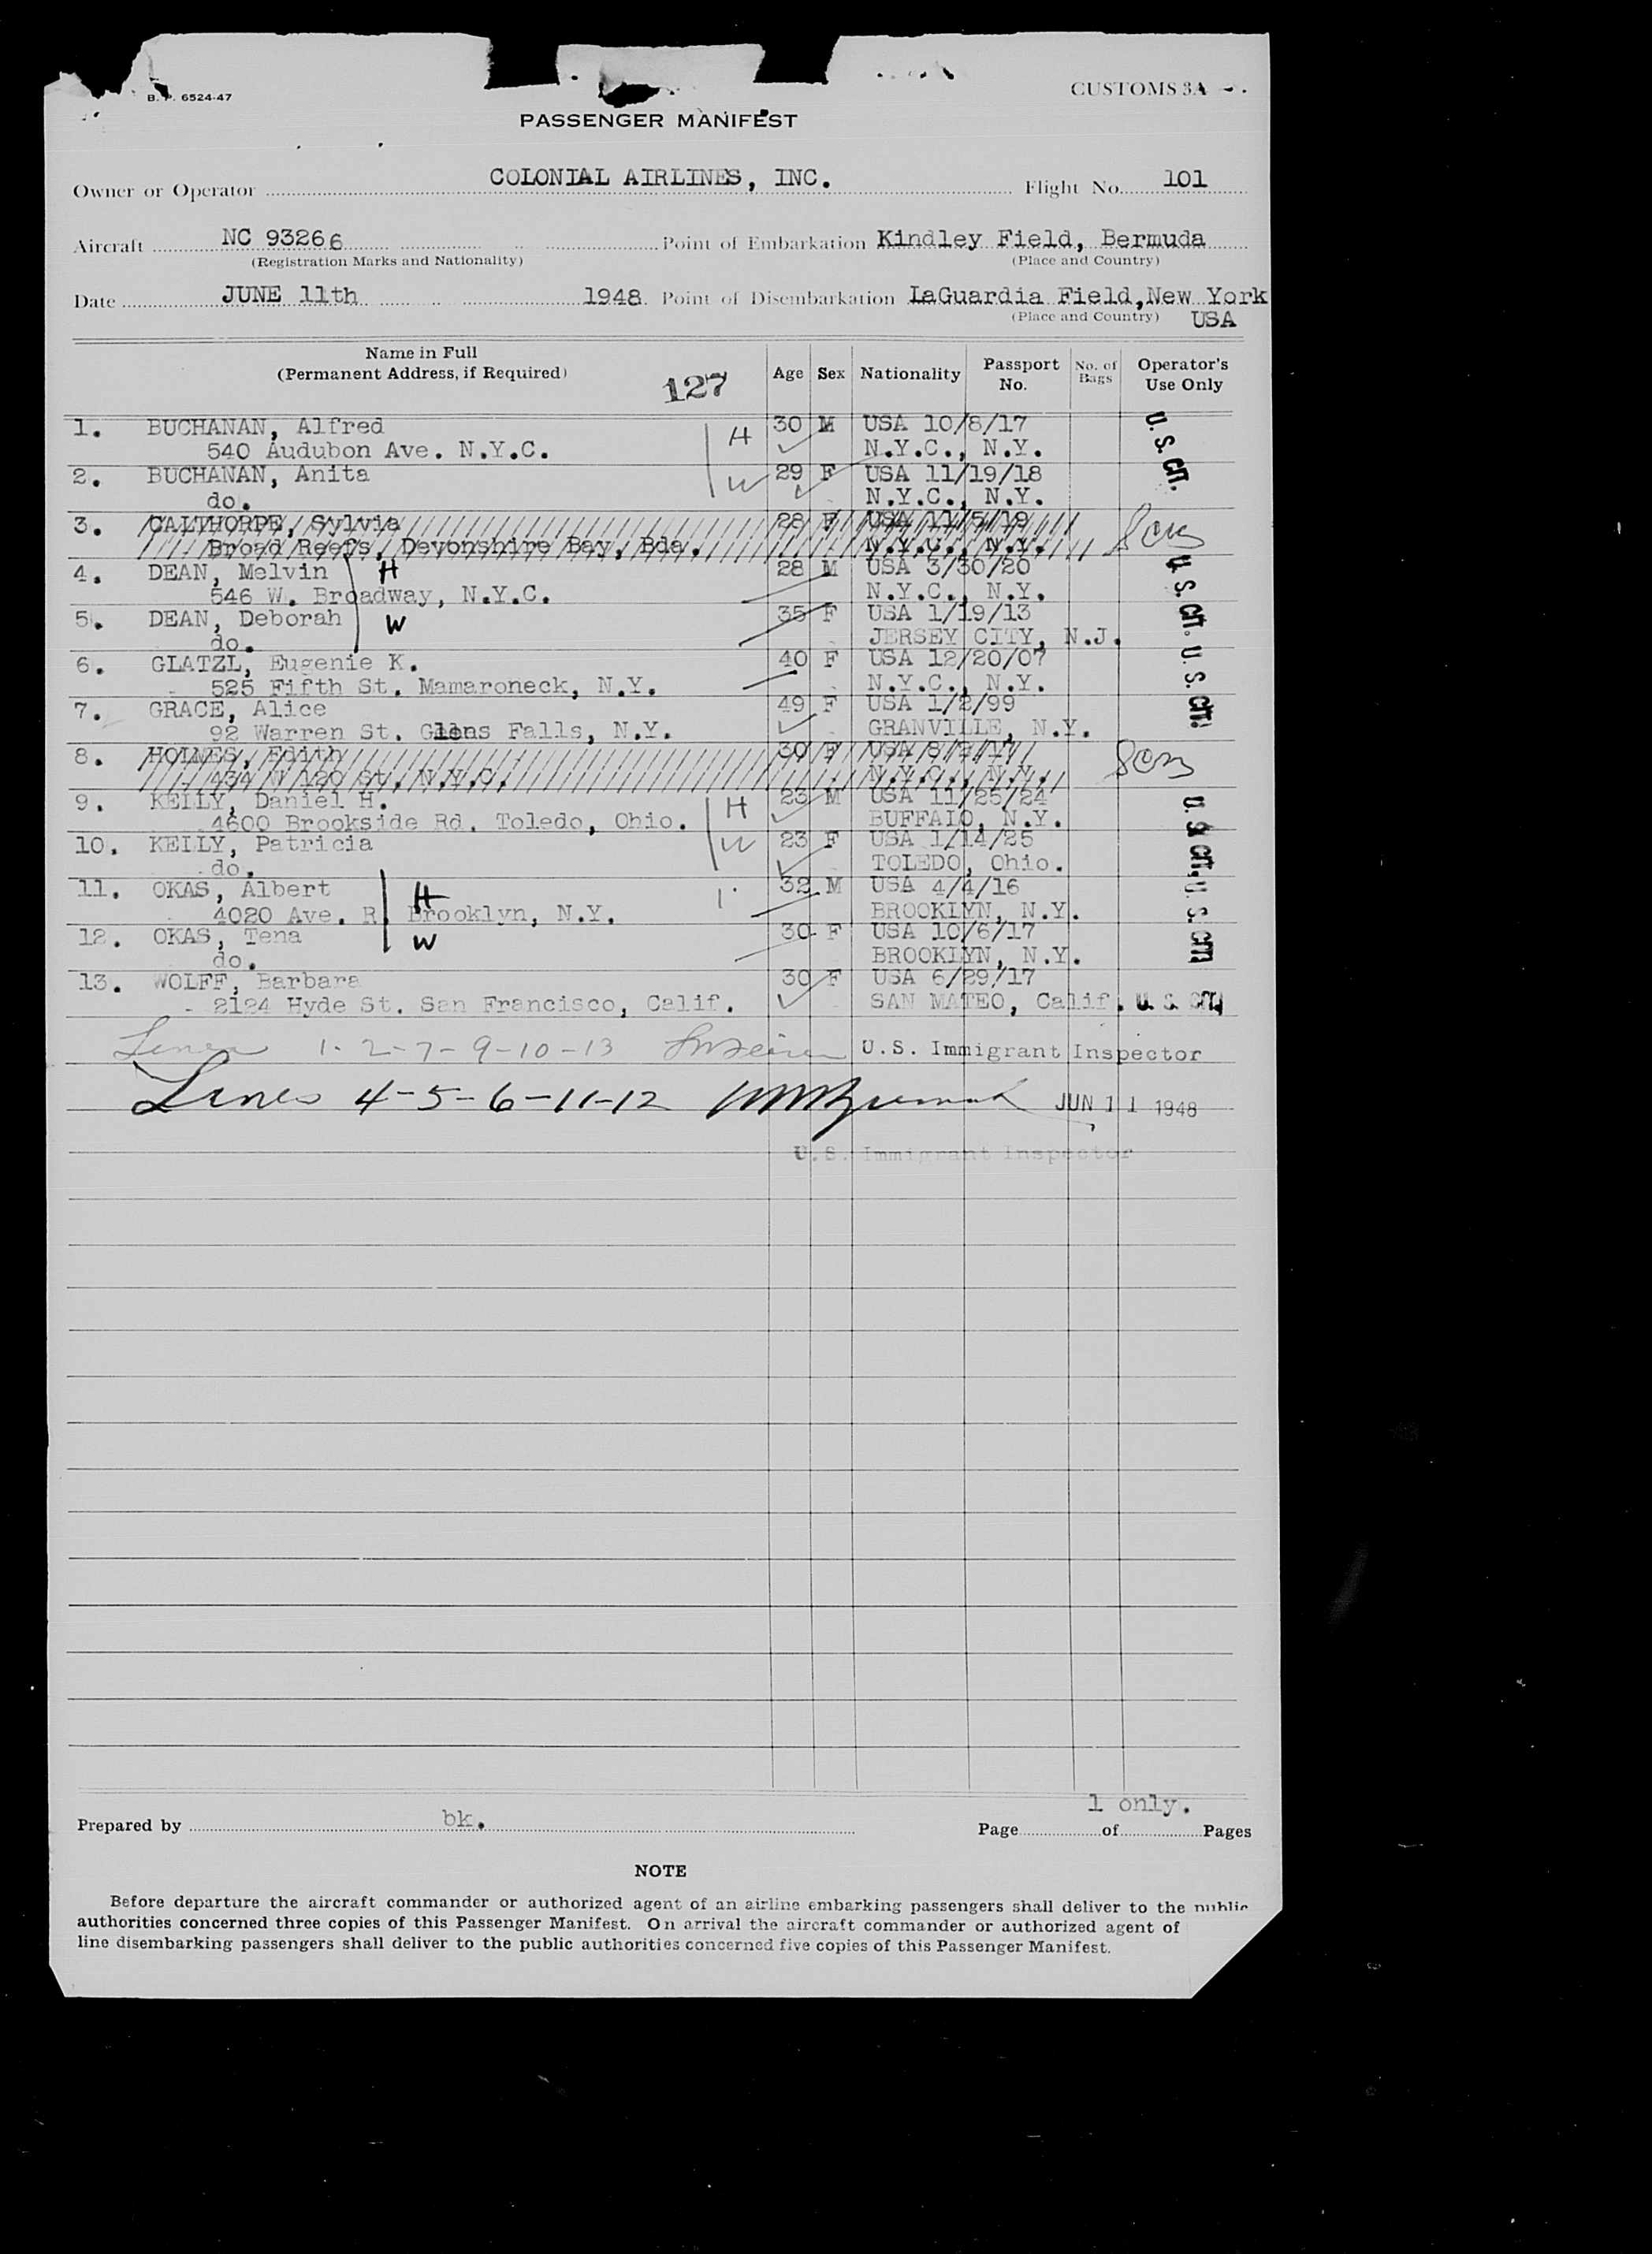 B. P. 6524-47
CUSTOMS 3A
PASSENGER MANIFEST
Owner or Operator COLONIAL AIRLINES, INC. Flight No. 101
Aircraft NC 93266 Point of Embarkation Kindley Field, Bermuda
(Registration Marks and Nationality) (Place and Country)
Date JUNE 11th 1948 Point of Disembarkation LaGuardia Field, New York
(Place and Country) USA
Name in Full
(Permanent Address, if Required) 127 Age Sex Nationality Passport No. No. of Bags Operator's Use Only
1. BUCHANAN, Alfred H 30 M USA 10/8/17
540 Audubon Ave. N.Y.C. N.Y.C., N.Y. U. S. CIT.
2. BUCHANAN, Anita W 29 F USA 11/19/18
do. N.Y.C., N.Y.
3. CALTHORPE, Sylvia 28 F USA 11/5/19
Broad Reefs, Devonshire Bay, Bda. N.Y.C., N.Y.
4. DEAN, Melvin H 28 M USA 3/30/20
546 W. Broadway, N.Y.C. N.Y.C., N.Y. U. S. CIT.
5. DEAN, Deborah W 35 F USA 1/19/13
do. JERSEY CITY, N.J.
6. GLATZL, Eugenie K. 40 F USA 12/20/07
525 Fifth St. Mamaroneck, N.Y. N.Y.C., N.Y. U. S. CIT.
7. GRACE, Alice 49 F USA 1/2/99
92 Warren St. Glens Falls, N.Y. GRANVILLE, N.Y.
8. HOLMES, Edith 30 F USA 8/9/17
434 W 120 St. N.Y.C. N.Y.C., N.Y.
9. KELLY, Daniel H. H 23 M USA 11/25/24
4600 Brookside Rd. Toledo, Ohio. BUFFALO, N.Y. U. S. CIT.
10. KELLY, Patricia W 23 F USA 1/14/25
do. TOLEDO, Ohio.
11. OKAS, Albert H 32 M USA 4/4/16
4020 Ave. R. Brooklyn, N.Y. BROOKLYN, N.Y. U. S. CIT.
12. OKAS, Tena W 30 F USA 10/6/17
do. BROOKLYN, N.Y.
13. WOLFF, Barbara 30 F USA 6/29/17
2124 Hyde St. San Francisco, Calif. SAN MATEO, Calif. U. S. CIT.
Lines 1-2-7-9-10-13 U.S. Immigrant Inspector
Lines 4-5-6-11-12 JUN 11 1948
U.S. Immigrant Inspector
1 only.
Prepared by bk. Page of Pages
NOTE
Before departure the aircraft commander or authorized agent of an airline embarking passengers shall deliver to the public
authorities concerned three copies of this Passenger Manifest. On arrival the aircraft commander or authorized agent of
line disembarking passengers shall deliver to the public authorities concerned five copies of this Passenger Manifest.